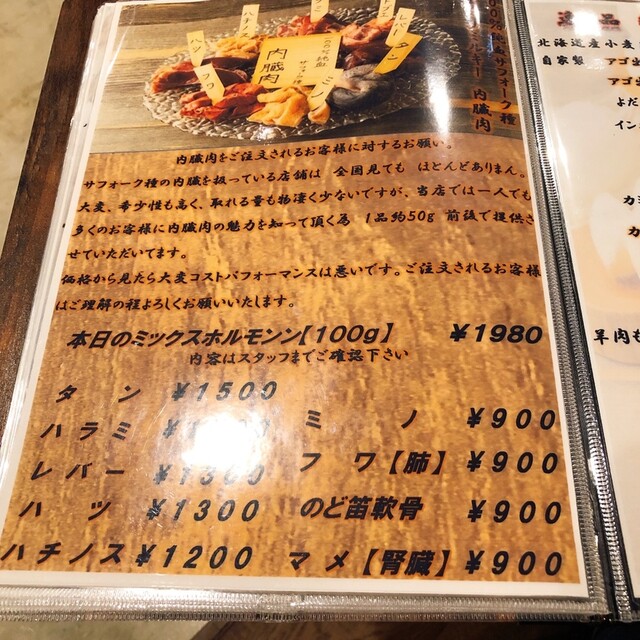 内臓肉
100%サフォーク種
内臓肉
タン
ハツ
フワ
ミノ
内臓肉をご注文されるお客様に対するお願い。
サフォーク種の内臓を扱っている店舗は 全国見ても ほとんどありません。
大変、希少性も高く、取れる量も物凄く少ないですが、当店では一人でも
多くのお客様に内臓肉の魅力を知って頂く為 1品約50g 前後で提供さ
せていただいてます。
価格から見たら大変コストパフォーマンスは悪いです。ご注文されるお客様
はご理解の程よろしくお願いいたします。
本日のミックスホルモンン【100g】 ¥1980
内容はスタッフまでご確認下さい
タン ¥1500
ハラミ
レバー ¥1300
ハツ ¥1300
ハチノス ¥1200
ミノ ¥900
フワ【肺】 ¥900
のど笛軟骨 ¥900
マメ【腎臓】 ¥900
逸品
北海道産小麦
自家製 アゴ出
アゴ出
よだ
イン
カ
羊肉も